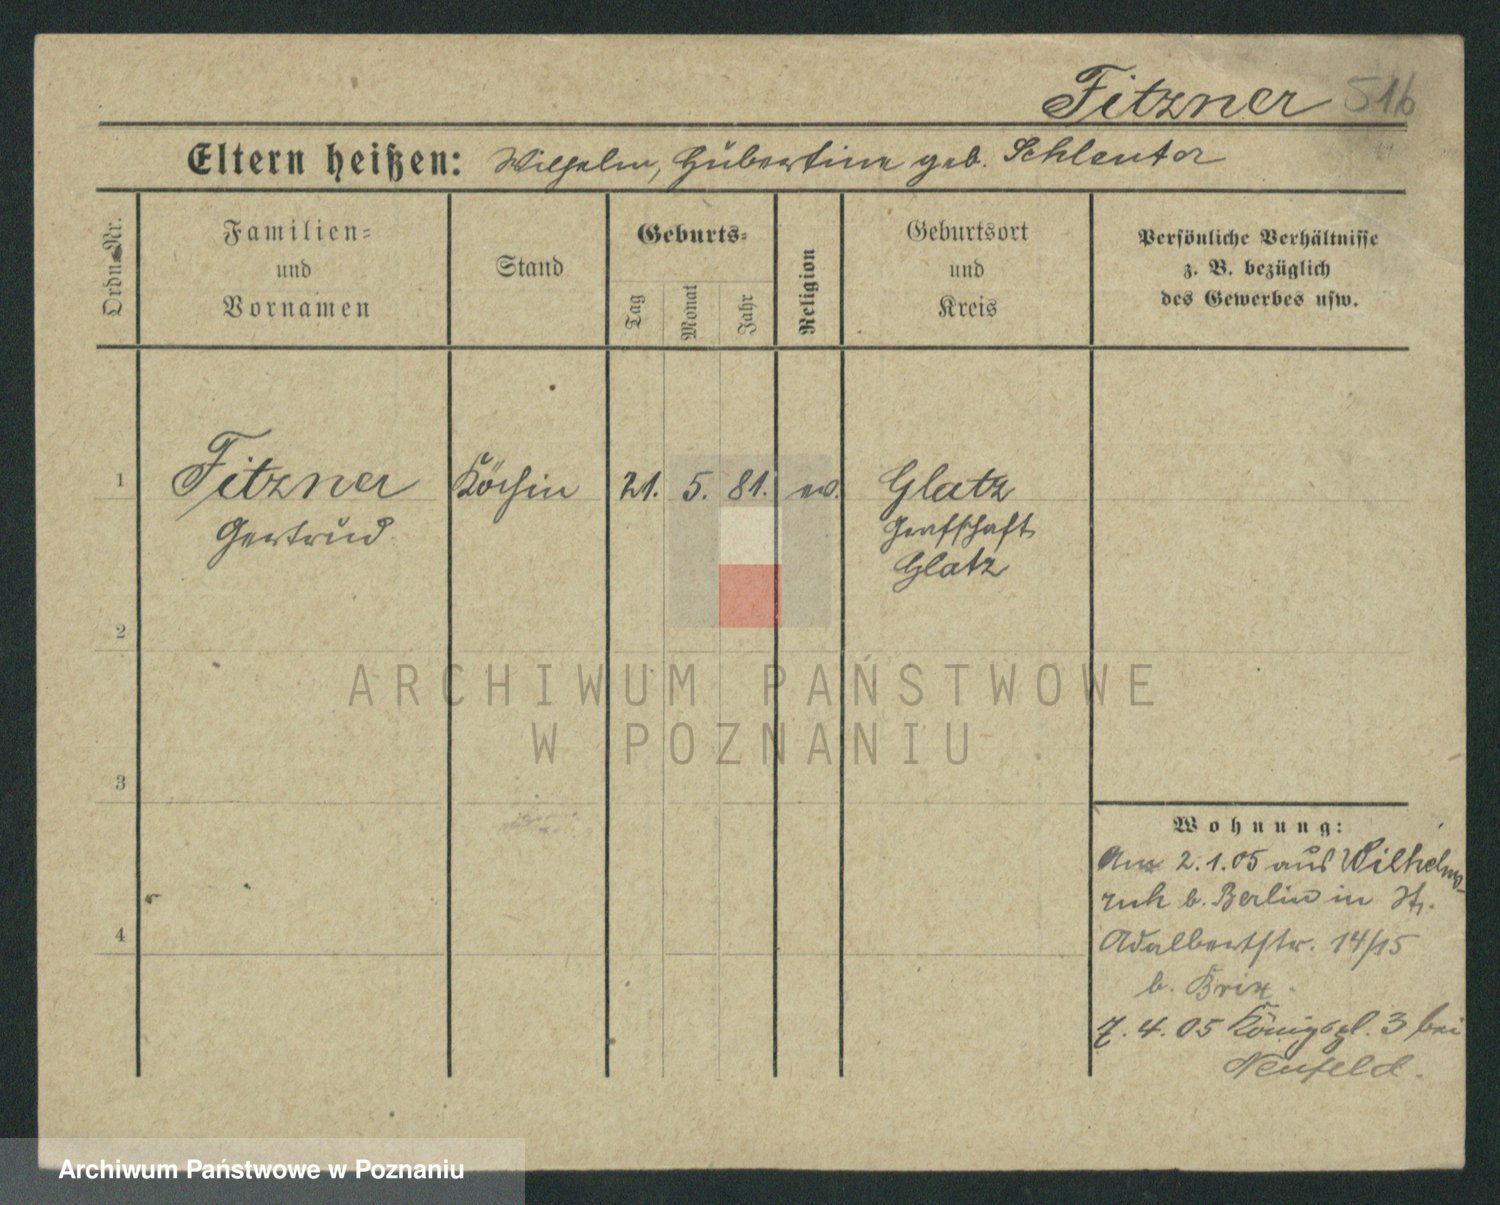 Fitzner 516
Eltern heißen: Wilhelm, Hubertine geb. Schlenter
Ordn. Nr.
Familien-
und
Vornamen
Stand
Geburts-
Tag
Monat
Jahr
Religion
Geburtsort
und
Kreis
Persönliche Verhältnisse
z. B. bezüglich
des Gewerbes usw.
1 Fitzner Köchin 21. 5. 81. ev. Glatz
Gertrud Grafschaft
Glatz
2
3
4
Wohnung:
Am 2.1.05 aus Wilhelms-
ruh b. Berlin in St.
Adalbertstr. 14/15
b. Brix.
7.4.05 Königspl. 3 bei
Neufeld.
ARCHIWUM PAŃSTWOWE
W POZNANIU
Archiwum Państwowe w Poznaniu